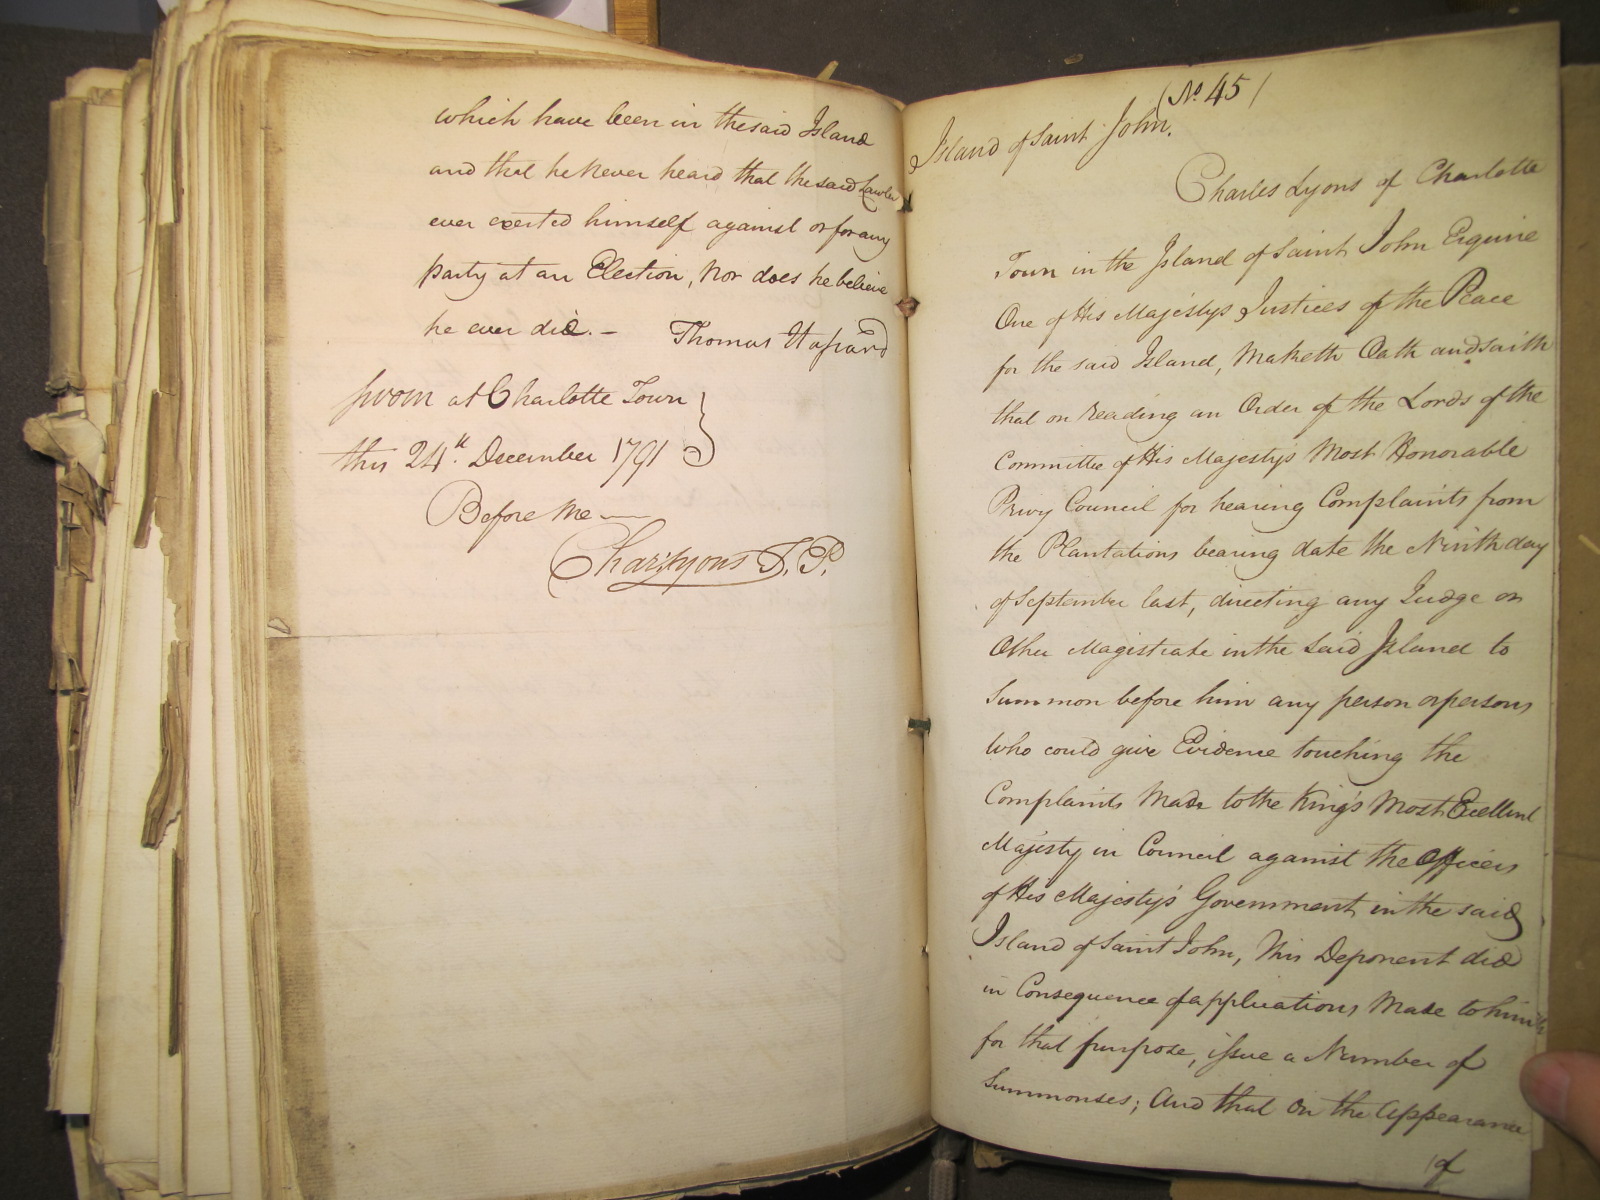 which have been in the said Island
and that he Never heard that the said Lawler
ever exerted himself against or for any
party at an Election, Nor does he believe
he ever did. —
Thomas Hassard
sworn at Charlotte Town
this 24th. December 1791
Before Me —
Chars Lyons J. P.
(No. 45)
Island of Saint John.
Charles Lyons of Charlotte
Town in the Island of Saint John Esquire
One of His Majestys Justices of the Peace
for the said Island, Maketh Oath and saith
that on reading an Order of the Lords of the
Committee of His Majestys Most Honorable
Privy Council for hearing Complaints from
the Plantations bearing date the Ninth day
of September last, directing any Judge or
Other Magistrate in the said Island to
Summon before him any person or persons
who could give Evidence touching the
Complaints Made to the King's Most Excellent
Majesty in Council against the Officers
of His Majesty's Government in the said
Island of Saint John, This Deponent did
in Consequence of applications Made to him
for that purpose, issue a Number of
Summonses; And that on the Appearance
of